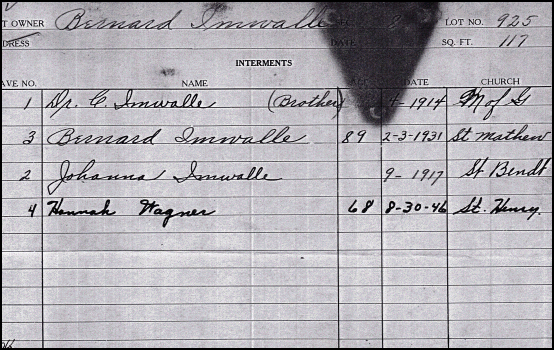 T OWNER Bernard Imwalle LOT NO. 925
DRESS DATE SQ. FT. 117
INTERMENTS
AVE NO. NAME DATE CHURCH
1 Dr. C. Imwalle (Brother) 1914 M of G
3 Bernard Imwalle 89 2-3-1931 St Mathew
2 Johanna Imwalle 9- 1917 St Bendt
4 Hannah Wagner 68 8-30-46 St. Henry.